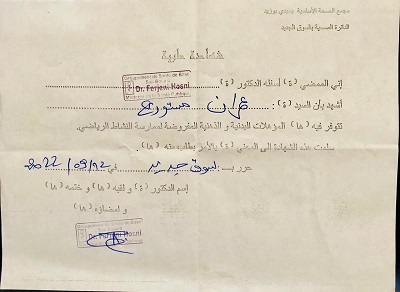 مجمع الصحة الأساسية بسيدي بوزيد
الدائرة الصحية بالسوق الجديد
شهادة طبية
إني الممضي (ة) أسفله الدكتور (ة)
Dr. Ferjeni Hosni
أشهد بأن السيد (ة) :
تتوفر فيه (ها) المؤهلات البدنية و الذهنية المفروضة لممارسة النشاط الرياضي.
سلمت هذه الشهادة إلى المعني (ة) بالأمر بطلب منه (ها)
حرر بـ : سوق جديد في 2022/09/12
إسم الدكتور (ة) و لقبه (ها) و ختمه (ها)
و إمضاؤه (ها)
Dr. Ferjeni Hosni